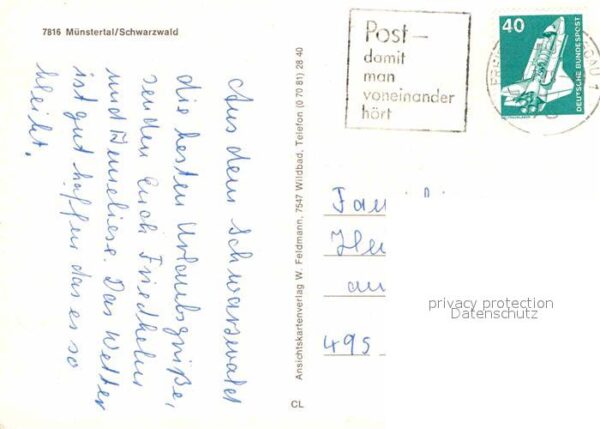 7816 Münstertal/Schwarzwald
Aus dem Schwarzwald
die besten Urlaubsgrüße,
senden Euch Friedhelm
und Anneliese. Das Wetter
ist gut hoffen das es so
bleibt.
Ansichtskartenverlag W. Feldmann, 7547 Wildbad, Telefon (0 70 81) 28 40
CL
Post –
damit
man
voneinander
hört
40
DEUTSCHE BUNDESPOST
Fam
495
privacy protection
Datenschutz